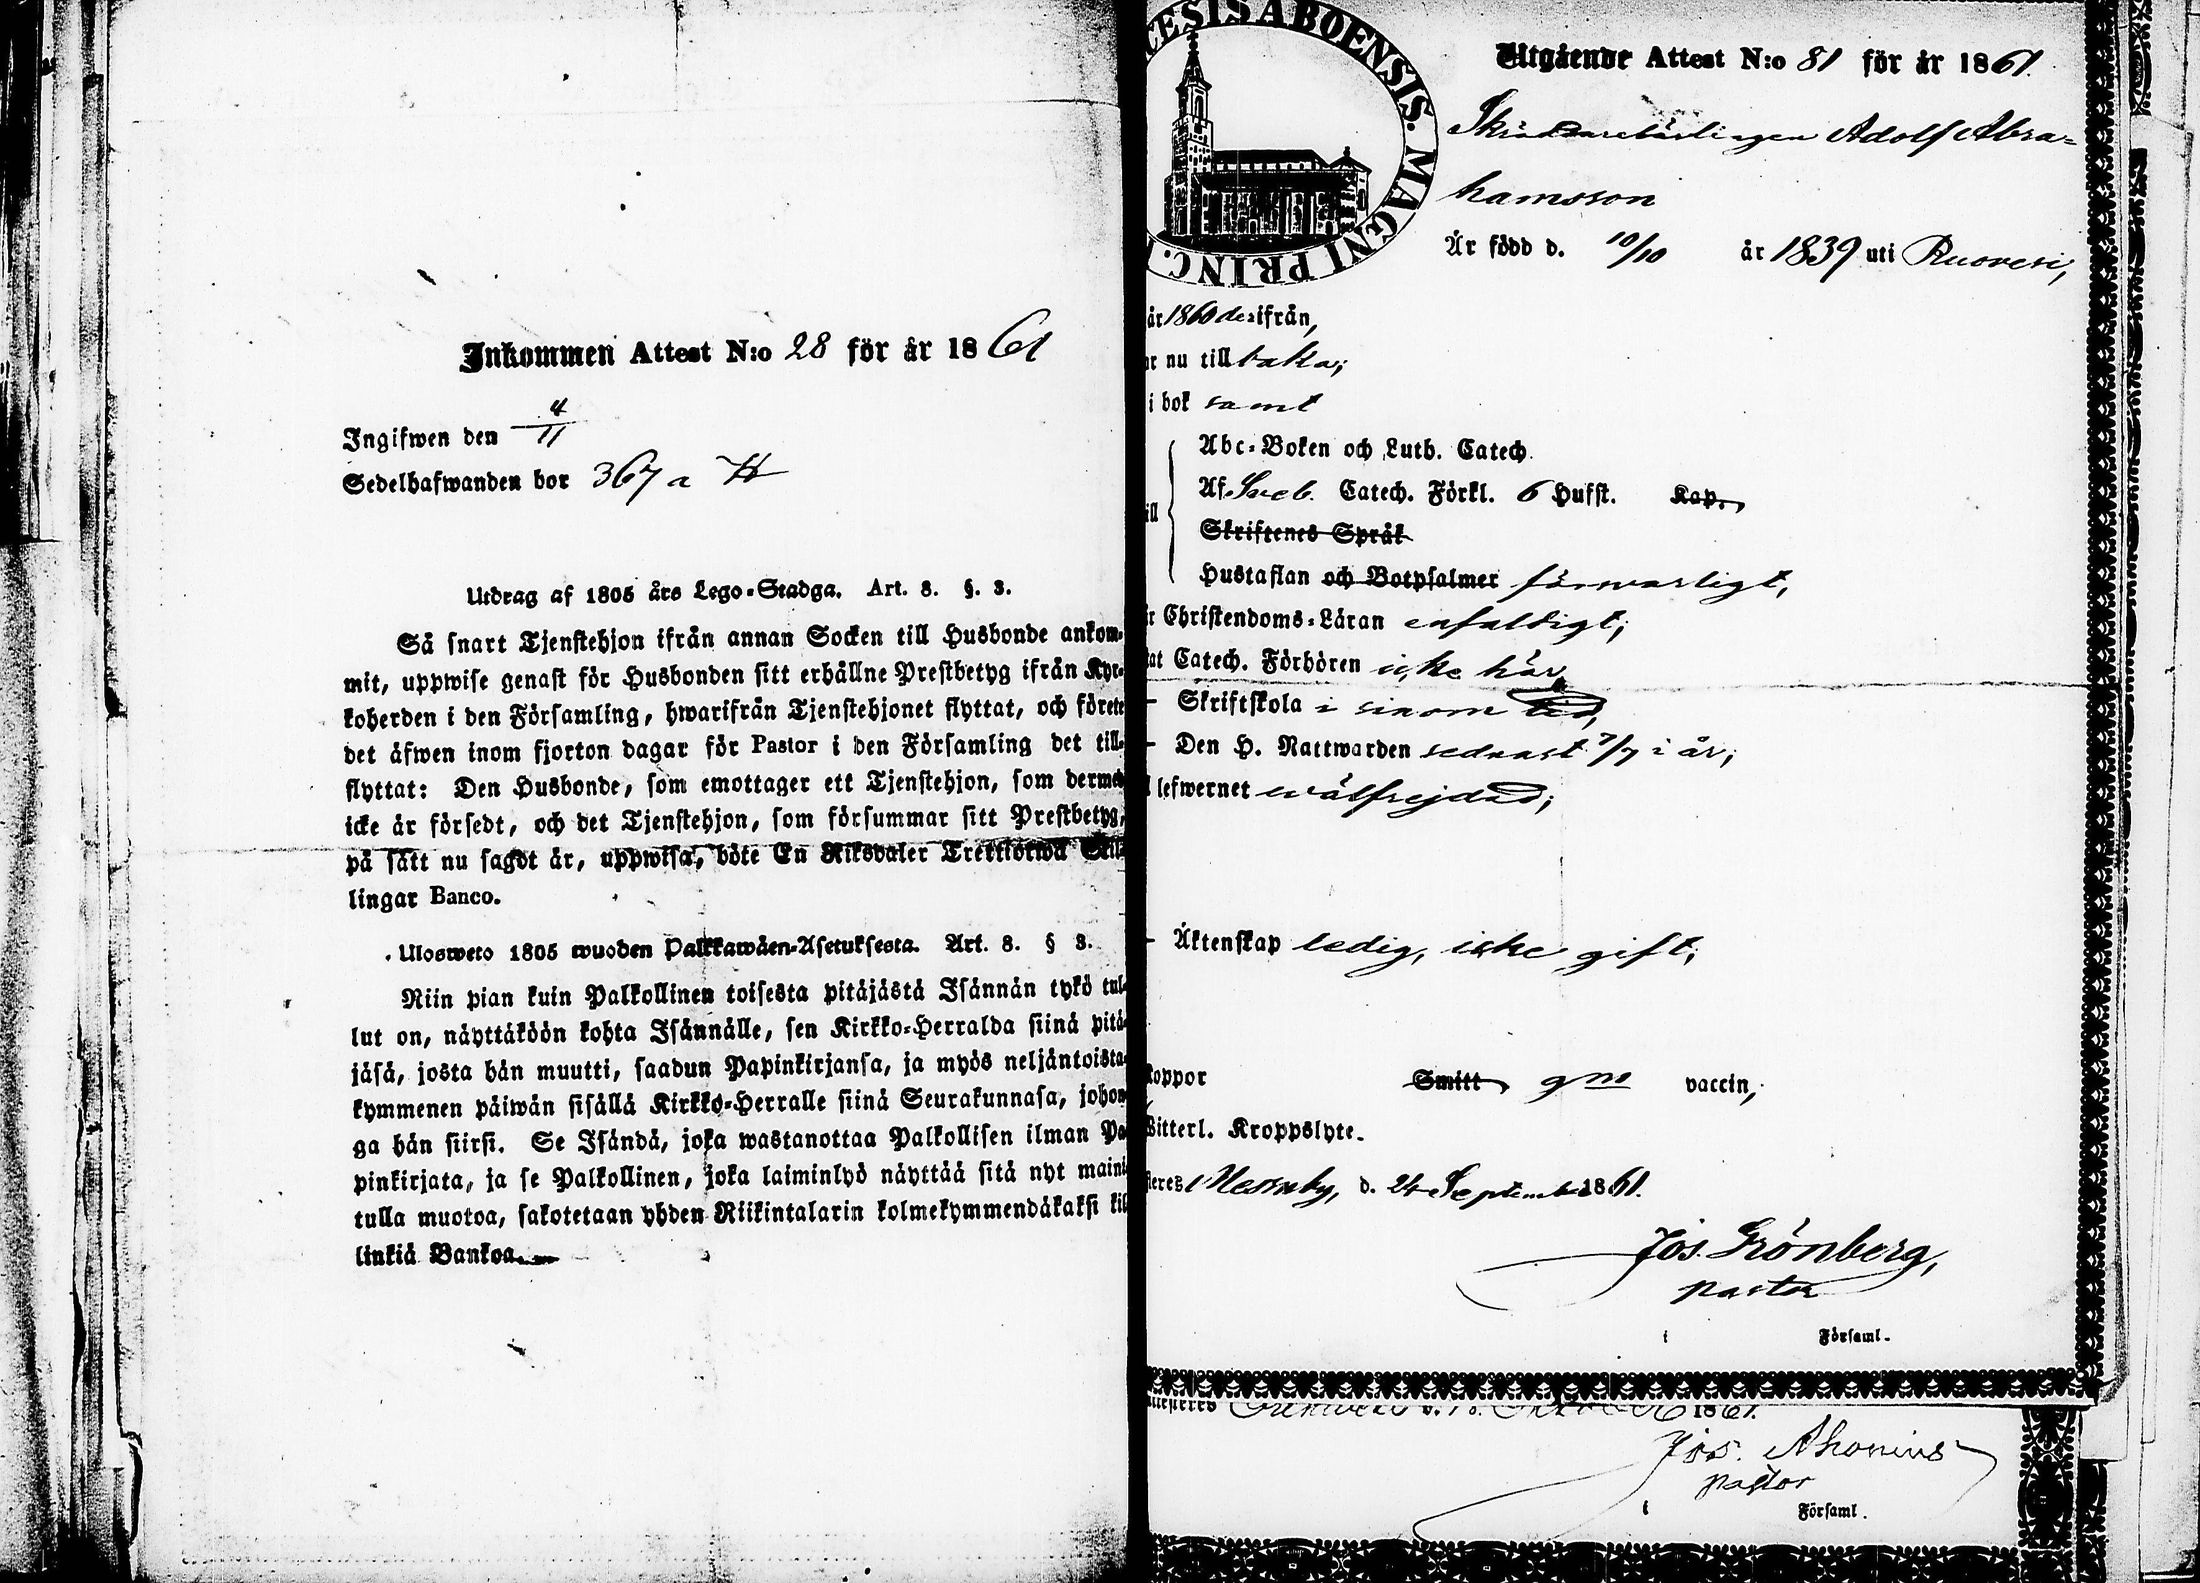 Inkommen Attest N:o 28 för år 1861
Ingifwen den 4/11
Sedelhafwanden bor 367 a
Utdrag af 1805 års Lego-Stadga. Art. 8. §. 3.
Så snart Tjenstehjon ifrån annan Socken till Husbonde ankom-
mit, uppwise genast för Husbonden sitt erhållne Prestbetyg ifrån Kyr-
koherden i den Församling, hwarifrån Tjenstehjonet flyttat, och förete
det äfwen inom fjorton dagar för Pastor i den Församling det till-
flyttat: Den Husbonde, som emottager ett Tjenstehjon, som dermed
icke är försedt, och det Tjenstehjon, som försummar sitt Prestbetyg,
på sätt nu sagdt är, uppwisa, böte En Riksdaler Trettiotwå Skil-
lingar Banco.
Ulosweto 1805 wuoden Palkkawäen-Asetuksesta. Art. 8. § 3.
Niin pian kuin Palkollinen toisesta pitäjästä Isännän tykö tul-
lut on, näyttäköön kohta Isännälle, sen Kirkko-Herralda siinä pitä-
jäsä, josta hän muutti, saadun Papinkirjansa, ja myös neljäntoista-
kymmenen päiwän sisällä Kirkko-Herralle siinä Seurakunnasa, johon-
ga hän siirsi. Se Isändä, joka wastanottaa Palkollisen ilman Pa-
pinkirjata, ja se Palkollinen, joka laiminlyö näyttää sitä nyt maini-
tulla muotoa, sakotetaan yhden Riikintalarin kolmekymmendäkaksi kil-
linkiä Bankoa.
CESIS ABOENSIS. MAGNI PRINC.
Utgående Attest N:o 81 för år 1861.
Skräddarelärlingen Adolf Abra-
hamsson
Är född d. 10/10 år 1839 uti Ruovesi,
år 1860 derifrån,
nu tillbaka;
i bok samt
Abc-Boken och Luth. Catech.
Af Sveb. Catech. Förkl. 6 Hufst. Kap.
Skriftenes Språk
Hustaflan och Botpsalmer försvarligt,
Christendoms-Läran enfaldigt;
Catech. Förhören icke här,
Skriftskola i sinom tid,
Den H. Nattwarden sednast 7/7 i år;
lefwernet wälfrejdad;
Äktenskap ledig, icke gift;
koppor Smitt gm vaccin,
Witterl. Kroppslyte.
d. 24 September 1861.
Jos. Grönberg,
pastor
i Församl.
1861.
Jos. Ahonius
pastor
i Församl.